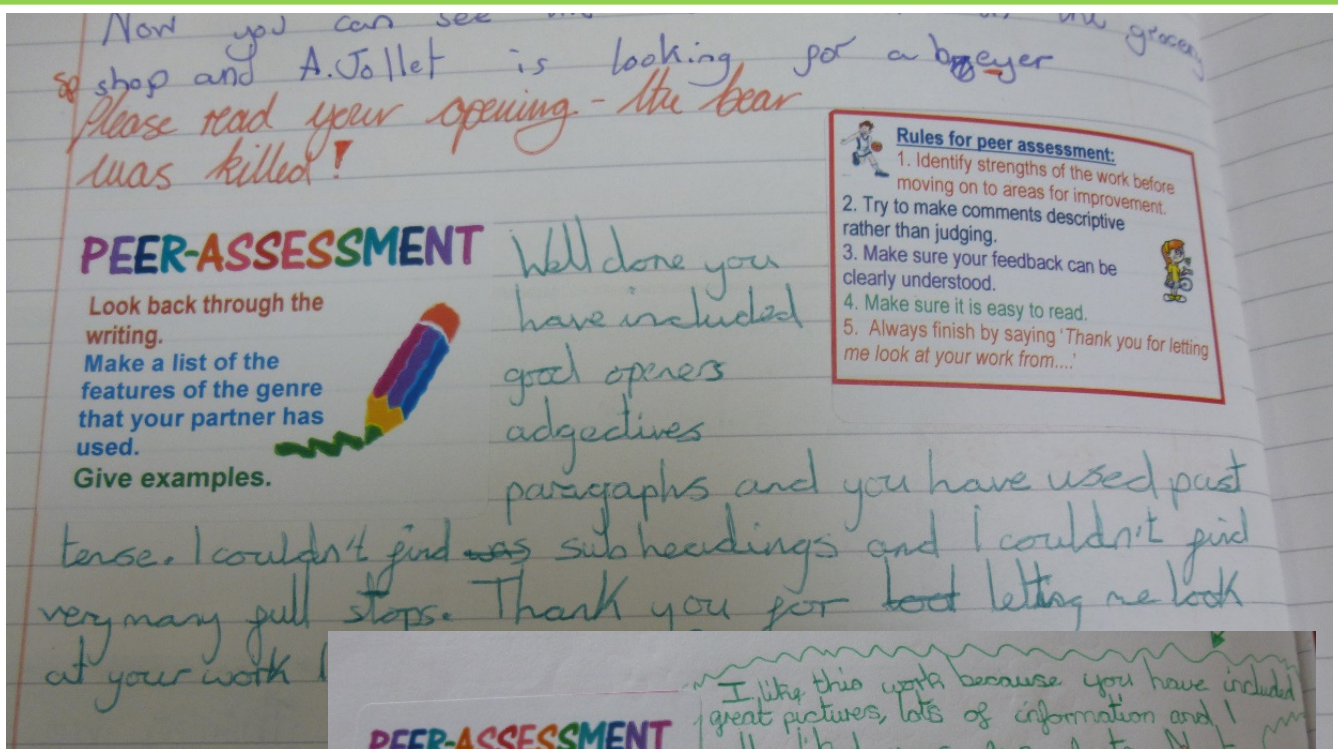 Now you can see
the grocery
sp shop and A.Jollet is looking for a
Please read your opening - the bear
was killed!
Rules for peer assessment:
1. Identify strengths of the work before
moving on to areas for improvement.
2. Try to make comments descriptive
rather than judging.
3. Make sure your feedback can be
clearly understood.
4. Make sure it is easy to read.
5. Always finish by saying 'Thank you for letting
me look at your work from....'
PEER-ASSESSMENT
Look back through the
writing.
Make a list of the
features of the genre
that your partner has
used.
Give examples.
Well done you
have included
good openers
adgectives
paragaphs and you have used past
tense. I couldn't find as subheadings and I couldn't find
very many full stops. Thank you for letting me look
at your work
PEER-ASSESSMENT
I like this work because you have included
great pictures, lots of information and I